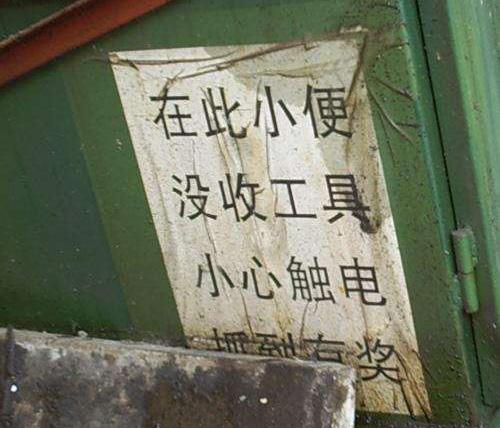 在此小便
没收工具
小心触电
抓到有奖